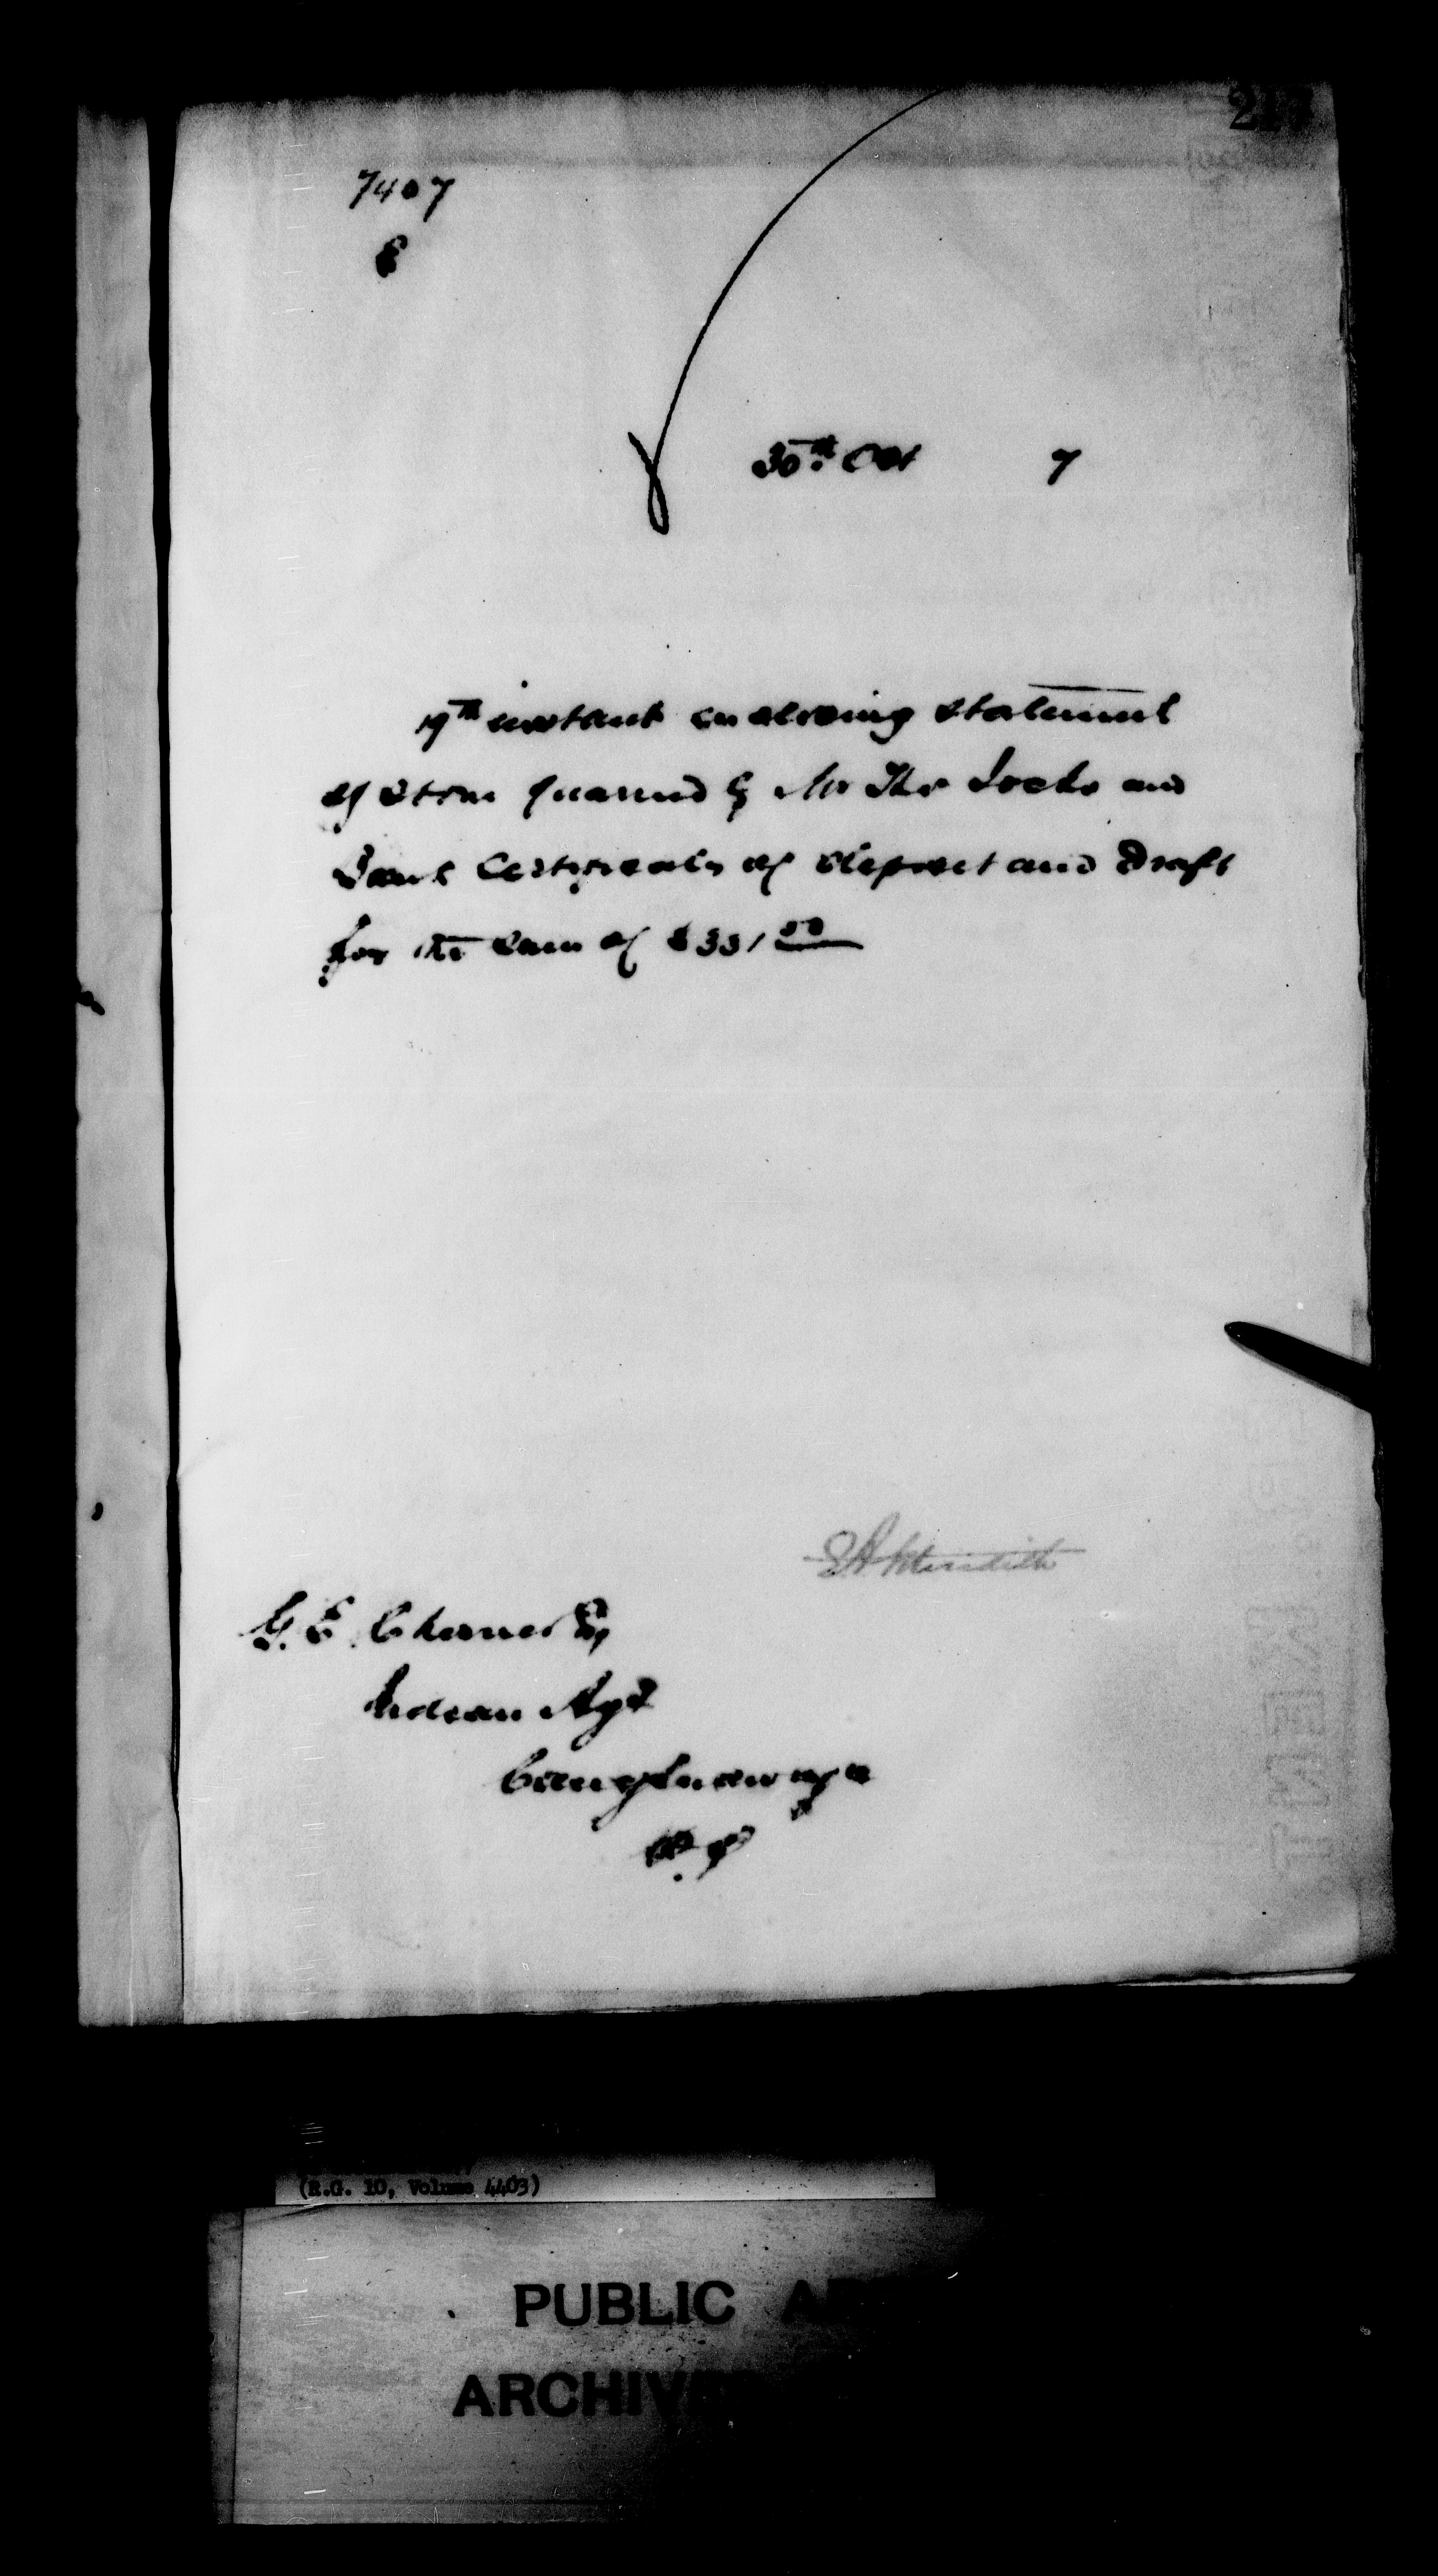 7407
30th Oct 7
19th instant enclosing statement
of stone quarried by Mr Thos Locke and
Bank Certificate of deposit and Draft
for the sum of $331 50
EA Meredith
G. E. Cherrier Esq
Indian Agt
Caughnawaga
P. Q
(R.G. 10, Volume 4403)
PUBLIC
ARCHIV